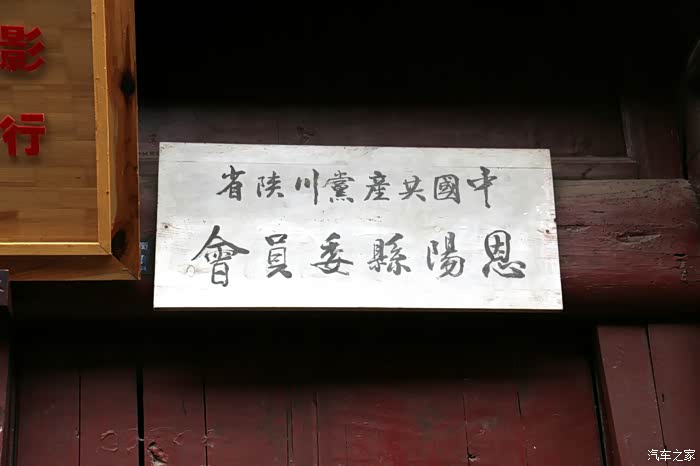 中國共產黨川陝省
恩陽縣委員會
影
行
汽车之家